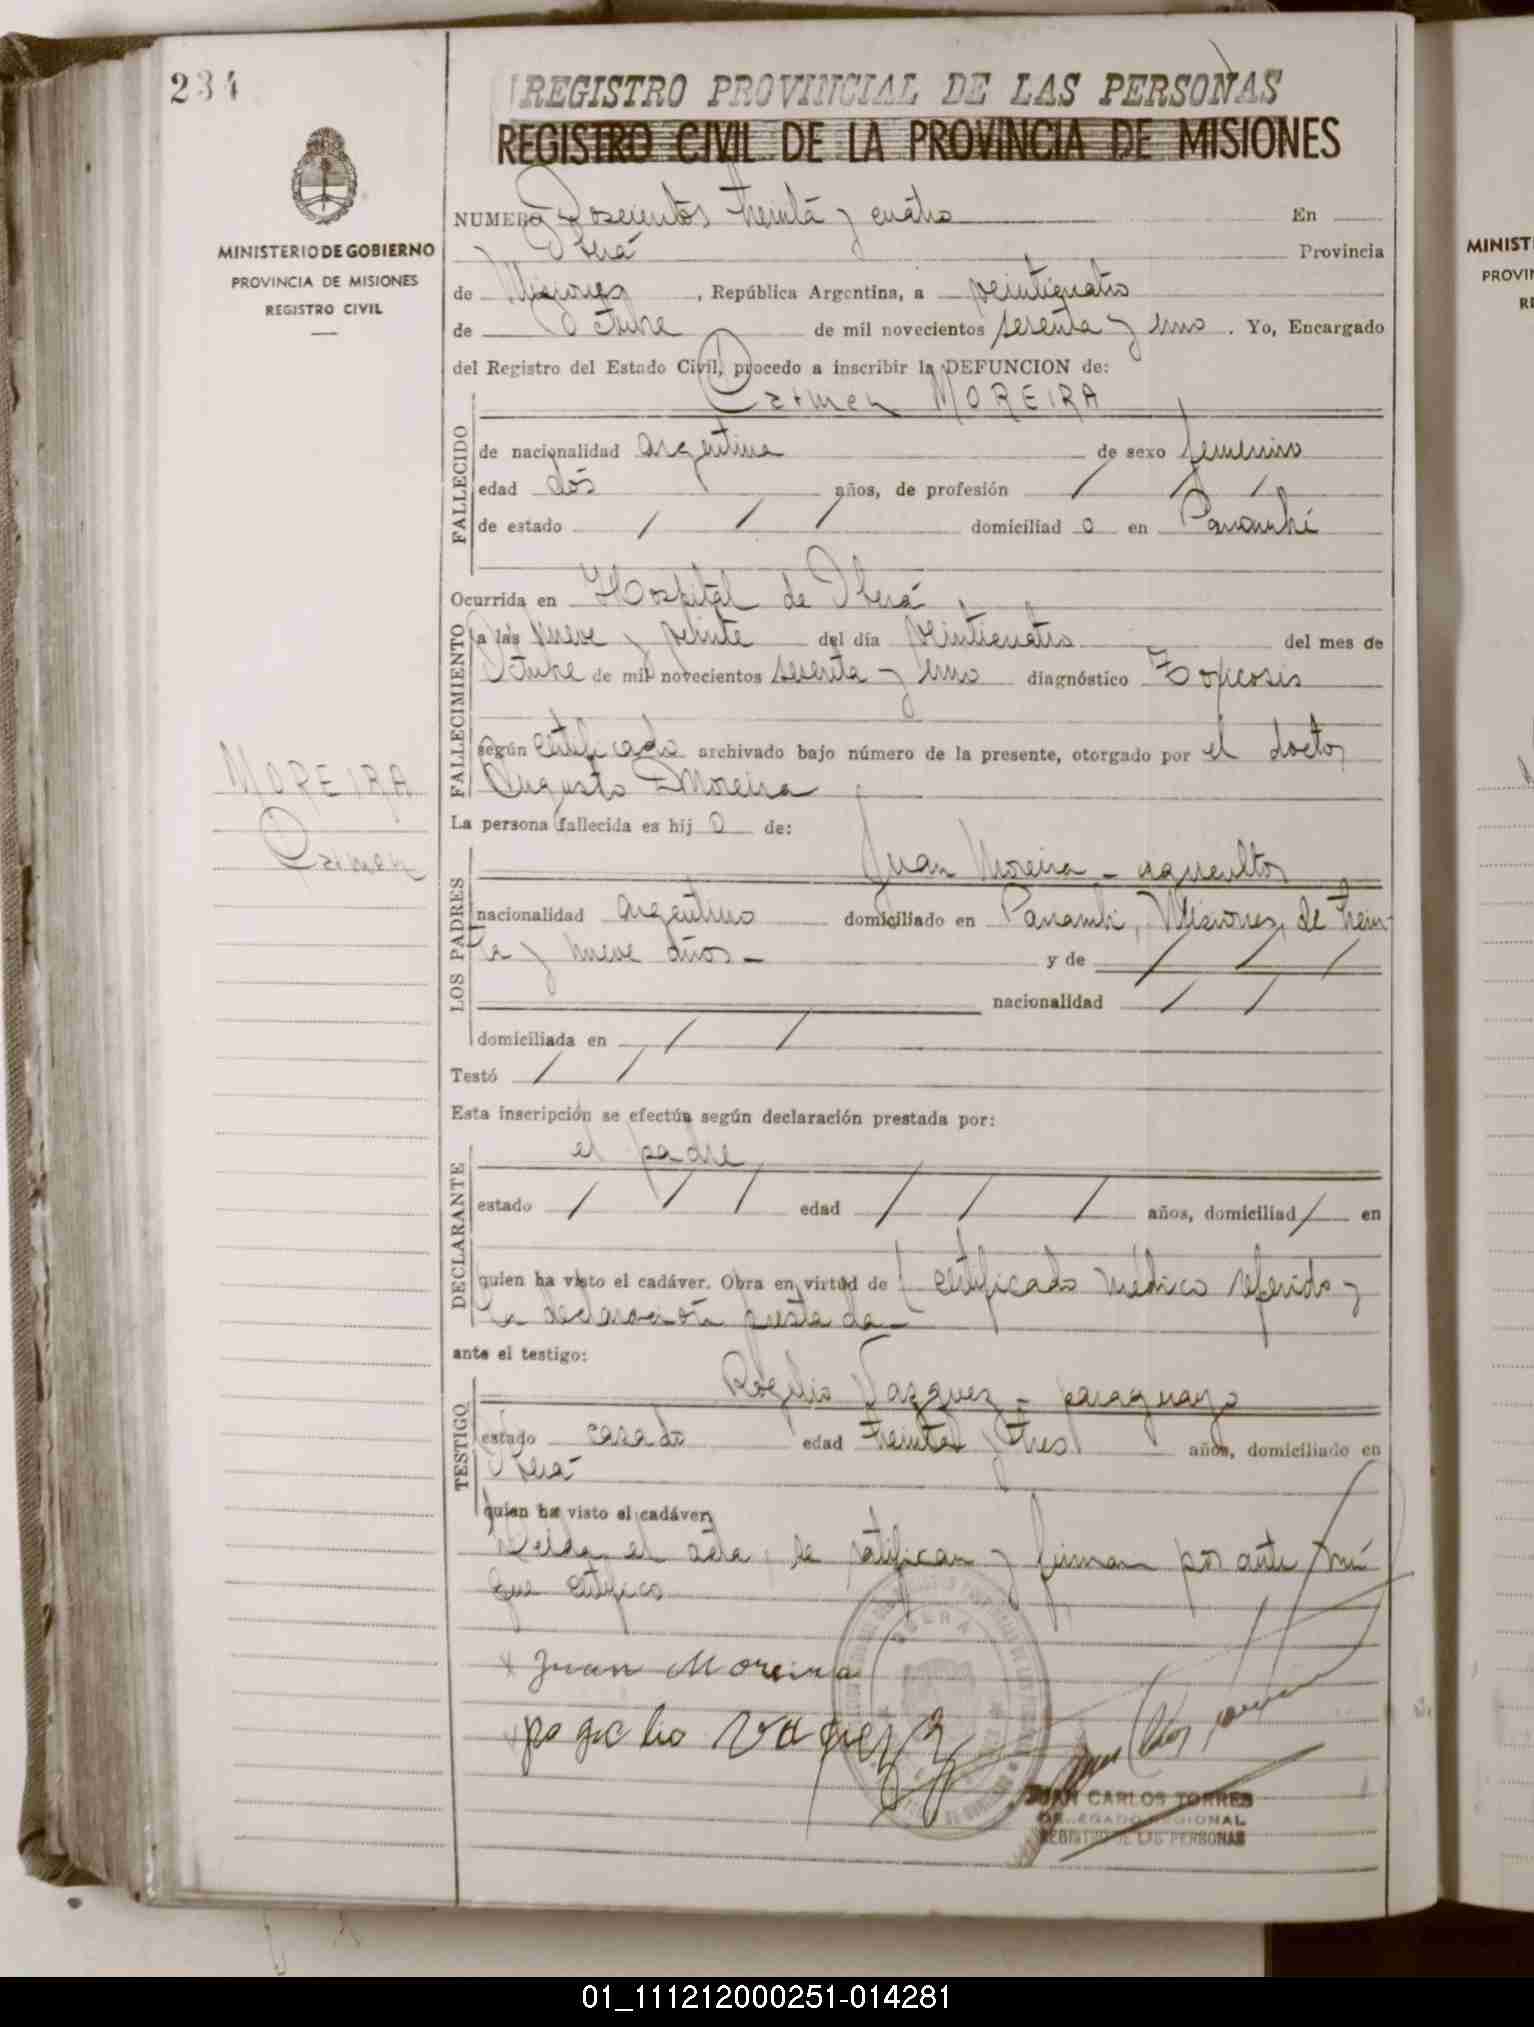 234
REGISTRO PROVINCIAL DE LAS PERSONAS
REGISTRO CIVIL DE LA PROVINCIA DE MISIONES
MINISTERIO DE GOBIERNO
PROVINCIA DE MISIONES
REGISTRO CIVIL
NUMERO Doscientos treinta y cuatro En
Oberá Provincia
de Misiones, República Argentina, a veinticuatro
de Octubre de mil novecientos sesenta y uno. Yo, Encargado
del Registro del Estado Civil, procedo a inscribir la DEFUNCION de:
Carmen MOREIRA
FALLECIDO
de nacionalidad argentina de sexo femenino
edad dos años, de profesión / / /
de estado / / / domiciliad o en Panambí
Ocurrida en Hospital de Oberá
FALLECIMIENTO
a las nueve y veinte del día veinticuatro del mes de
Octubre de mil novecientos sesenta y uno diagnóstico Toxicosis
según certificado archivado bajo número de la presente, otorgado por el doctor
Augusto Moreira
MOREIRA
Carmen
La persona fallecida es hij o de:
LOS PADRES
Juan Moreira - agricultor
nacionalidad argentino domiciliado en Panambí, Misiones, de trein-
ta y nueve años - y de / / /
nacionalidad / /
domiciliada en / /
Testó / /
Esta inscripción se efectúa según declaración prestada por:
DECLARANTE
el padre
estado / / / edad / / / años, domiciliad / en
quien ha visto el cadáver. Obra en virtud de certificado médico referido y
la declaración prestada -
ante el testigo:
TESTIGO
Rogelio Vazquez - paraguayo
estado casado edad treinta y tres años, domiciliado en
Oberá
quien ha visto el cadáver.
Leida el acta, la ratifican y firman por ante mí
que certifico
x Juan Moreira
rogelio Vazquez
OBERA
JUAN CARLOS TORRES
DELEGADO REGIONAL
REGISTRO DE LAS PERSONAS
MINIST
PROVIN
RE
01_111212000251-014281